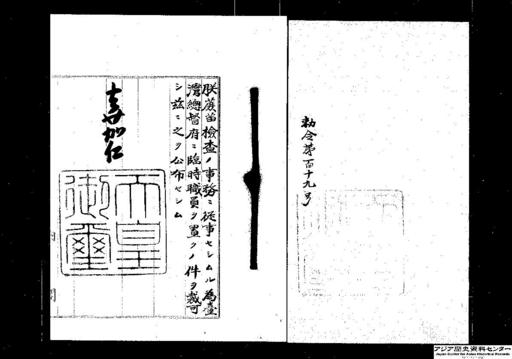 勅令第百十九号
朕蔗苗檢査ノ事務ニ從事セシムル為臺
灣總督府ニ臨時職員ヲ置クノ件ヲ裁可
シ茲ニ之ヲ公布セシム
嘉仁
天皇
御璽
アジア歴史資料センター
Japan Center for Asian Historical Records